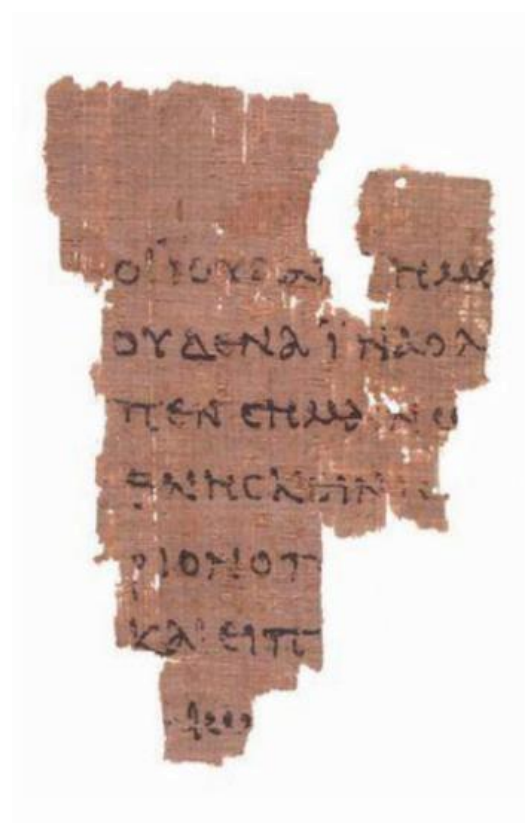 ΟΙΪΟΥΔΑΙ ΗΜΙ
ΟΥΔΕΝΑΪΝΑΟΛ
ΠΕΝCΗΜΑΙΝΩ
ΘΝΗCΚΕΙΝΙC
ΡΙΟΝΟΠ
ΚΑΙΕΙΠ